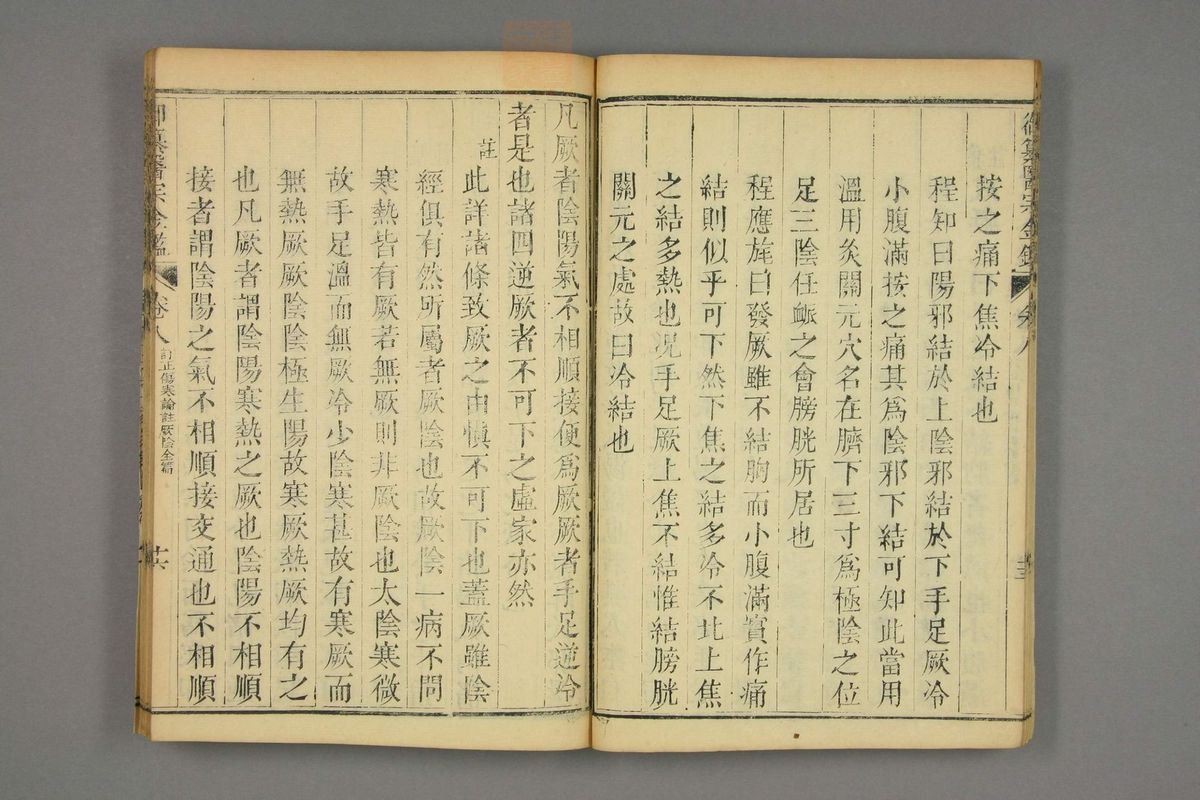 按之痛下焦冷結也
程知曰陽邪結於上陰邪結於下手足厥冷
小腹滿按之痛其爲陰邪下結可知此當用
溫用灸關元穴名在臍下三寸爲極陰之位
足三陰任衇之會膀胱所居也
程應旄曰發厥雖不結胸而小腹滿實作痛
結則似乎可下然下焦之結多冷不比上焦
之結多熱也况手足厥上焦不結惟結膀胱
關元之處故曰冷結也
凡厥者陰陽氣不相順接便爲厥厥者手足逆冷
者是也諸四逆厥者不可下之虛家亦然
註
此詳諸條致厥之由愼不可下也蓋厥雖陰
經俱有然所屬者厥陰也故厥陰一病不問
寒熱皆有厥若無厥則非厥陰也太陰寒微
故手足溫而無厥冷少陰寒甚故有寒厥而
無熱厥厥陰陰極生陽故寒厥熱厥均有之
也凡厥者謂陰陽寒熱之厥也陰陽不相順
接者謂陰陽之氣不相順接交通也不相順
卷八
訂正傷寒論註厥陰全篇